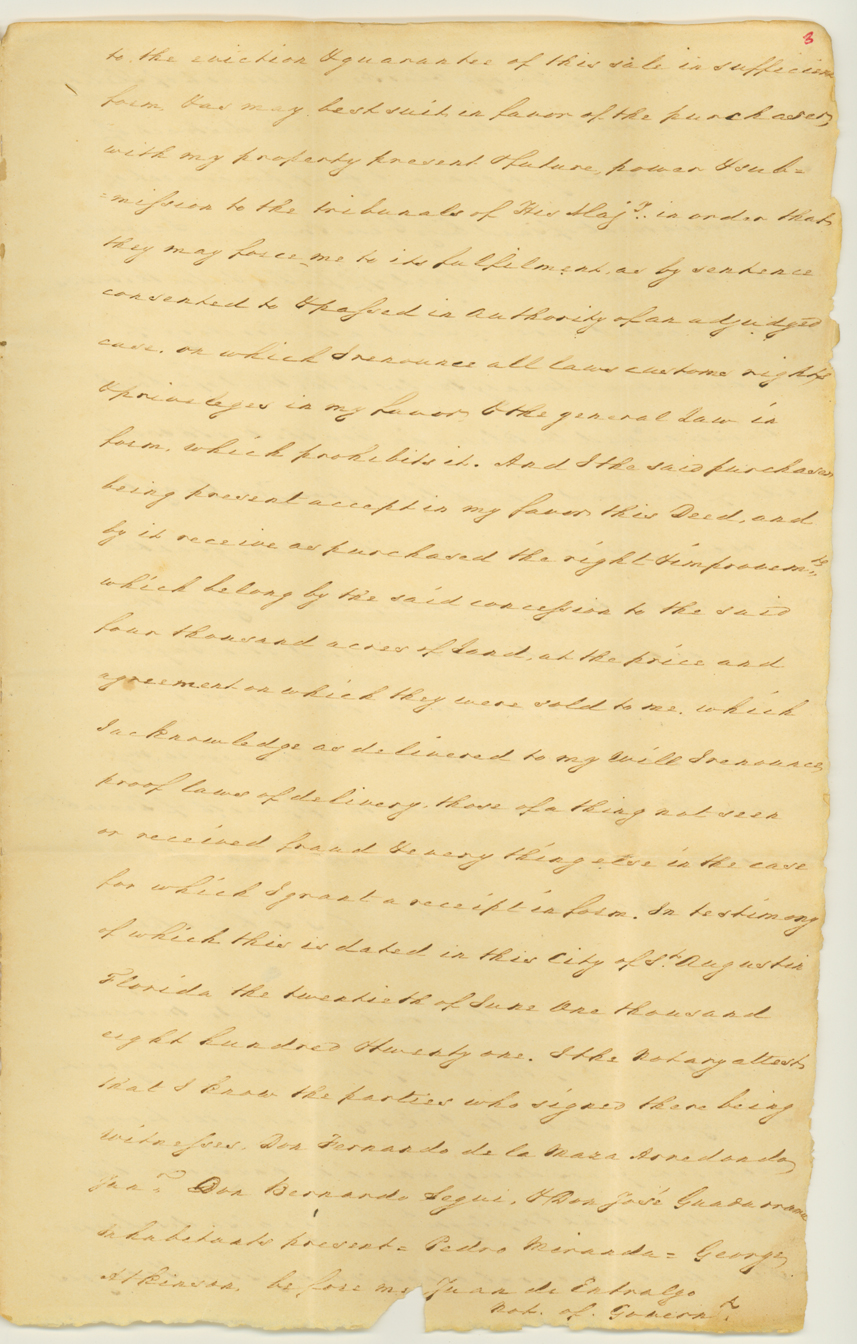 3
to the eviction & guarantee of this sale in sufficient
form, & as may best suit in favor of the purchaser,
with my property present & future, power & sub=
=mission to the tribunals of His Majy. in order that
they may force me to its fulfilment, as by sentence
consented to & passed in authority of an adjudged
case, on which I renounce all laws customs rights
& priveleges in my favor & the general Law in
form, which prohibits it. And I the said purchaser
being present accept in my favor this Deed, and
by it receive as purchased the right & improvemts.
which belong by the said concession to the said
four thousand acres of Land, at the price and
agreement on which they were sold to me. which
I acknowledge as delivered to my Will I renounce
proof laws of delivery, those of a thing not seen
or received fraud & every thing else in the case
for which I grant a receipt in form. In testimony
of which this is dated in this City of St. Augustin
Florida the twentieth of June One thousand
eight hundred & twenty one. I the Notary attest
that I know the parties who signed there being
witnesses, Don Fernando de la Maza Arredondo,
Junr. Don Bernardo Segui, & Don José Guadarrama
inhabitants present = Pedro Miranda = George
Atkinson, before me Juan de Entralgo
Not. of. Governt.